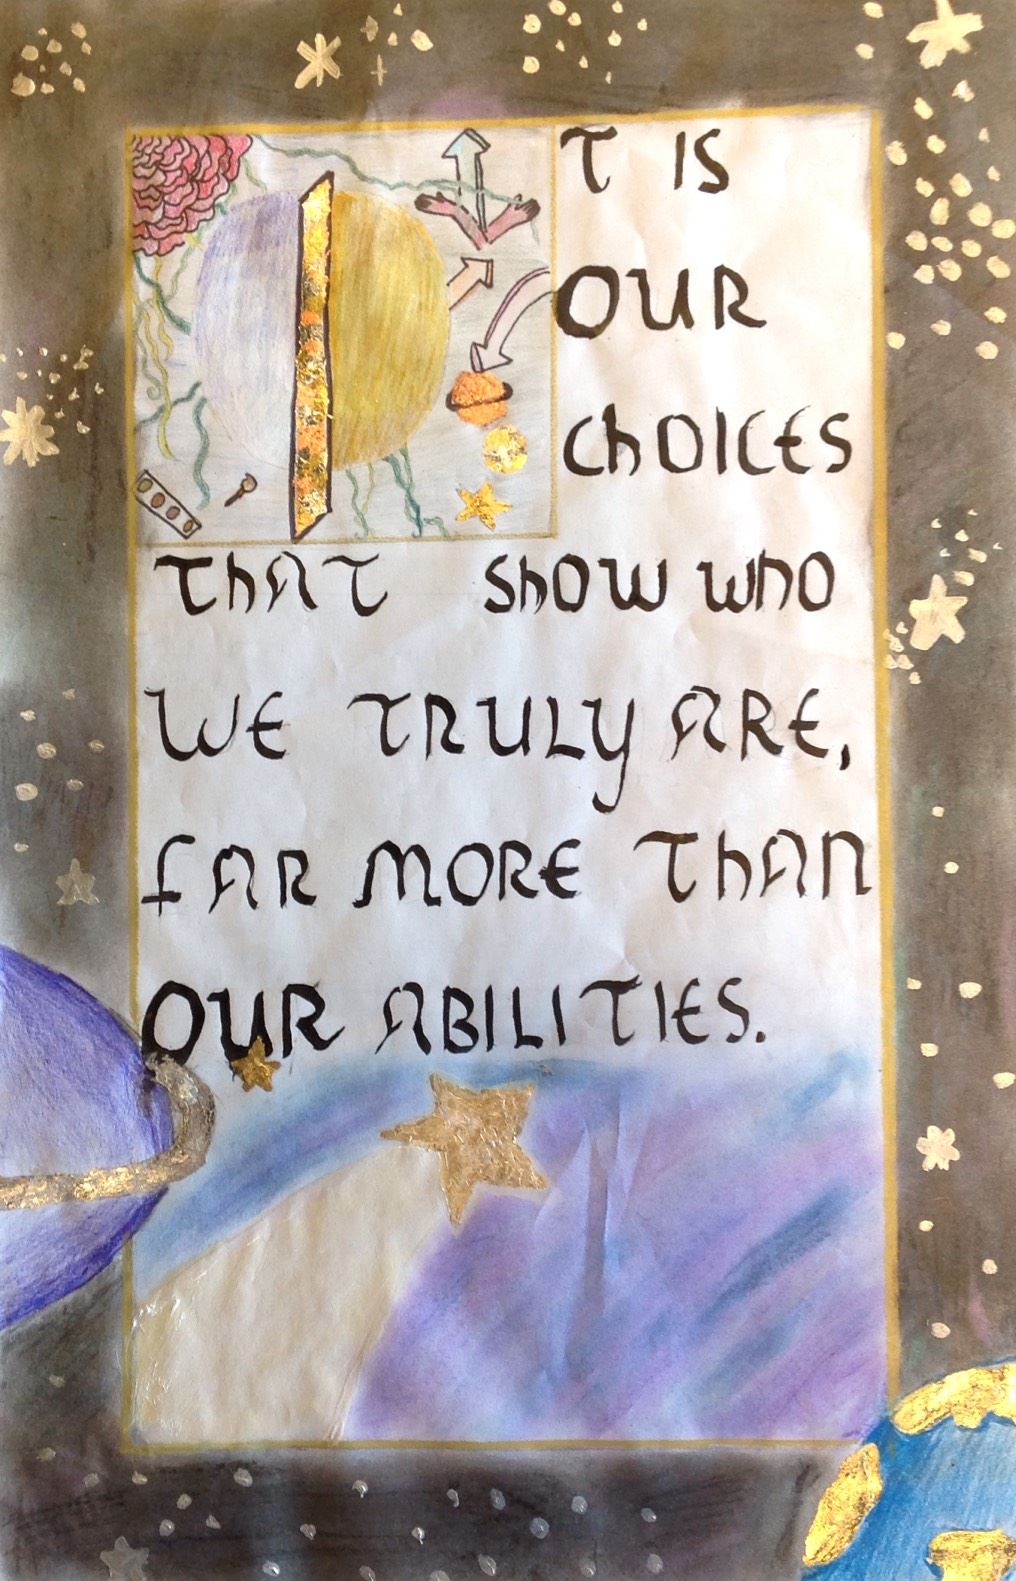 IT IS
OUR
CHOICES
THAT SHOW WHO
WE TRULY ARE,
FAR MORE THAN
OUR ABILITIES.